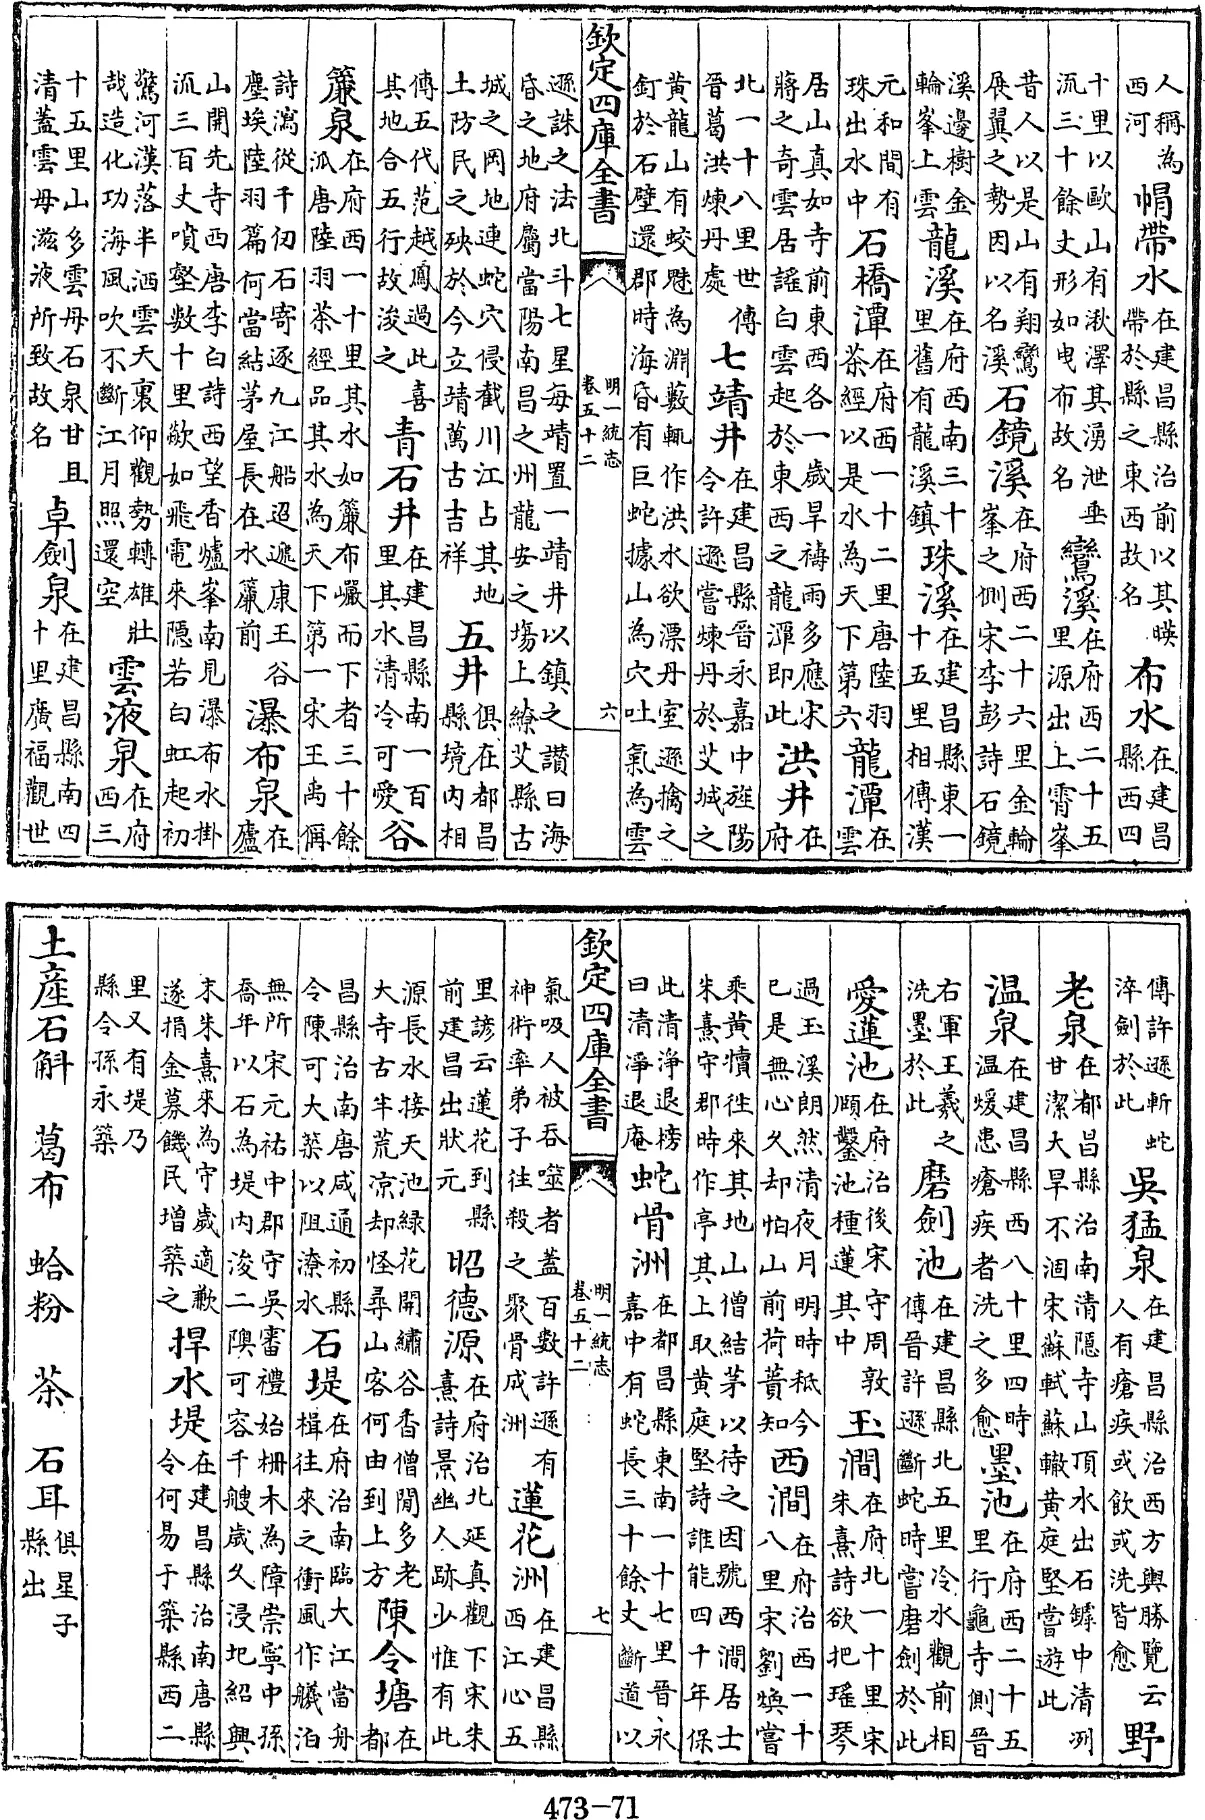 人稱為西河帽帶水在建昌縣治前以其暎帶於縣之東西故名布水在建昌縣西四
十里以歐山有湫澤其湧泄垂流三十餘丈形如曳布故名鸞溪在府西二十五里源出上霄峯
昔人以是山有翔鸞展翼之勢因以名溪石鏡溪在府西二十六里金輪峯之側宋李彭詩石鏡
溪邊樹金輪峯上雲龍溪在府西南三十里舊有龍溪鎮珠溪在建昌縣東一十五里相傳漢
元和間有珠出水中石橋潭在府西一十二里唐陸羽茶經以是水為天下第六龍潭在雲
居山真如寺前東西各一歲旱禱雨多應宋將之奇雲居謠白雲起於東西之龍潭即此洪井在府
北一十八里世傳晉葛洪煉丹處七靖井在建昌縣晉永嘉中旌陽令許遜嘗煉丹於艾城之
黃龍山有蛟魅為淵藪輒作洪水欲漂丹室遜擒之釘於石壁還郡時海昏有巨蛇據山為穴吐氣為雲
欽定四庫全書
明一統志
卷五十二
六
遜誅之法北斗七星每靖置一靖井以鎮之讚曰海昏之地府屬當陽南昌之州龍安之塲上繚艾縣古
城之岡地連蛇穴侵截川江占其地土防民之殃於今立靖萬古吉祥五井俱在都昌縣境內相
傳五代范越鳳過此喜其地合五行故浚之青石井在建昌縣南一百里其水清冷可愛谷
簾泉在府西一十里其水如簾布巖而下者三十餘泒唐陸羽茶經品其水為天下第一宋王禹偁
詩瀉從千仞石寄逐九江船迢遞康王谷塵埃陸羽篇何當結茅屋長在水簾前瀑布泉在廬
山開先寺西唐李白詩西望香爐峯南見瀑布水掛流三百丈噴壑數十里欻如飛電來隱若白虹起初
驚河漢落半洒雲天裏仰觀勢轉雄壯哉造化功海風吹不斷江月照還空雲液泉在府西三
十五里山多雲母石泉甘且清蓋雲母滋液所致故名卓劍泉在建昌縣南四十里廣福觀世
傳許遜斬蛇淬劍於此吳猛泉在建昌縣治西方輿勝覽云人有瘡疾或飲或洗皆愈野
老泉在都昌縣治南清隱寺山頂水出石罅中清洌甘潔大旱不涸宋蘇軾蘇轍黃庭堅嘗遊此
温泉在建昌縣西八十里四時温煖患瘡疾者洗之多愈墨池在府西二十五里行龜寺側晉
右軍王羲之洗墨於此磨劍池在建昌縣北五里冷水觀前相傳晉許遜斷蛇時嘗磨劍於此
愛蓮池在府治後宋守周敦頤鑿池種蓮其中玉澗在府北一十里宋朱熹詩欲把瑤琴
過玉溪朗然清夜月明時秪今已是無心久却怕山前荷蕢知西澗在府治西一十八里宋劉煥嘗
乘黃犢往來其地山僧結茅以待之因號西澗居士朱熹守郡時作亭其上取黃庭堅詩誰能四十年保
此清淨退榜曰清淨退庵蛇骨洲在都昌縣東南一十七里晉永嘉中有蛇長三十餘丈斷道以
欽定四庫全書
明一統志
卷五十二
七
氣吸人被吞噬者蓋百數許遜有神術率弟子往殺之聚骨成洲蓮花洲在建昌縣西江心五
里諺云蓮花到縣前建昌出狀元昭德源在府治北延真觀下宋朱熹詩景幽人跡少惟有此
源長水接天池綠花開繡谷香僧閒多老大寺古半荒凉却怪尋山客何由到上方陳令塘在都
昌縣治南唐咸通初縣令陳可大築以阻潦水石堤在府治南臨大江當舟楫往來之衝風作艤泊
無所宋元祐中郡守吳審禮始柵木為障崇寧中孫喬年以石為堤內浚二隩可容千艘歲久浸圯紹興
末朱熹來為守歲適歉遂捐金募饑民增築之捍水堤在建昌縣治南唐縣令何易于築縣西二
里又有堤乃縣令孫永築
土產石斛 葛布 蛤粉 茶 石耳俱星子縣出
473-71